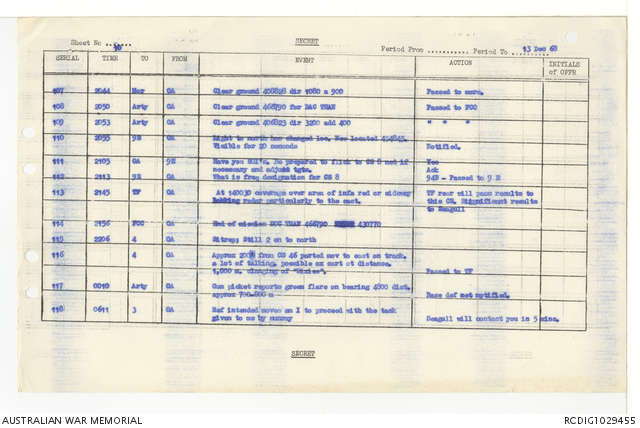 SECRET
Sheet No ...30...
Period From ........... Period To 13 Dec 68
SERIAL TIME TO FROM EVENT ACTION INITIALS of OFFR
107 2044 Mor OA Clear ground 408828 dir 1080 a 900 Passed to mors.
108 2050 Arty OA Clear ground 468790 for DAC THAN Passed to FOO
109 2053 Arty OA Clear ground 406823 dir 3200 add 400 " " "
110 2055 9E OA Light to north has changed loc. Now located 414845.
Visible for 20 seconds Notified.
111 2103 OA 9E Have you SOI's. Be prepared to flick to CS 8 net if Yes
necessary and adjust tgts. Ack
112 2113 9E OA What is freq designation for CS 8 949 - Passed to 9 E
113 2145 TF OA At 140030 coverage over area of infa red or sideway TF rear will pass results to
radar particularly to the east. this CS. Significant results
to Seagull
114 2156 FOO OA End of mission DOC THAN 466790 430770
115 2206 4 OA Sitrep: Still 2 on to north
116 4 OA Approx 200X from CS 46 parted mov to east on track.
a lot of talking, possible ox cart at distance.
1,000 m. clanging of "dixies". Passed to TF
117 0010 Arty OA Gun picket reports green flare on bearing 4800 dist.
approx 700-800 m Base def not notified.
118 0611 3 OA Ref intended moves am I to proceed with the task
given to me by sunray Seagull will contact you in 5 mins.
SECRET
AUSTRALIAN WAR MEMORIAL
RCDIG1029455